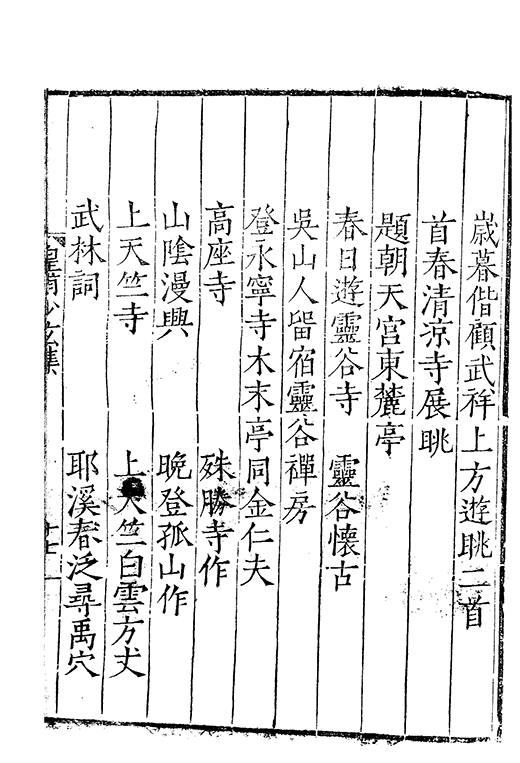 歲暮偕顧武祥上方遊眺二首
首春清涼寺展眺
題朝天宮東麓亭
春日遊靈谷寺　靈谷懷古
吳山人留宿靈谷禪房
登永寧寺木末亭同金仁夫
高座寺　殊勝寺作
山陰漫興　晚登孤山作
上天竺寺　上天竺白雲方丈
武林詞　耶溪春泛尋禹穴
皇甫少玄集　十七